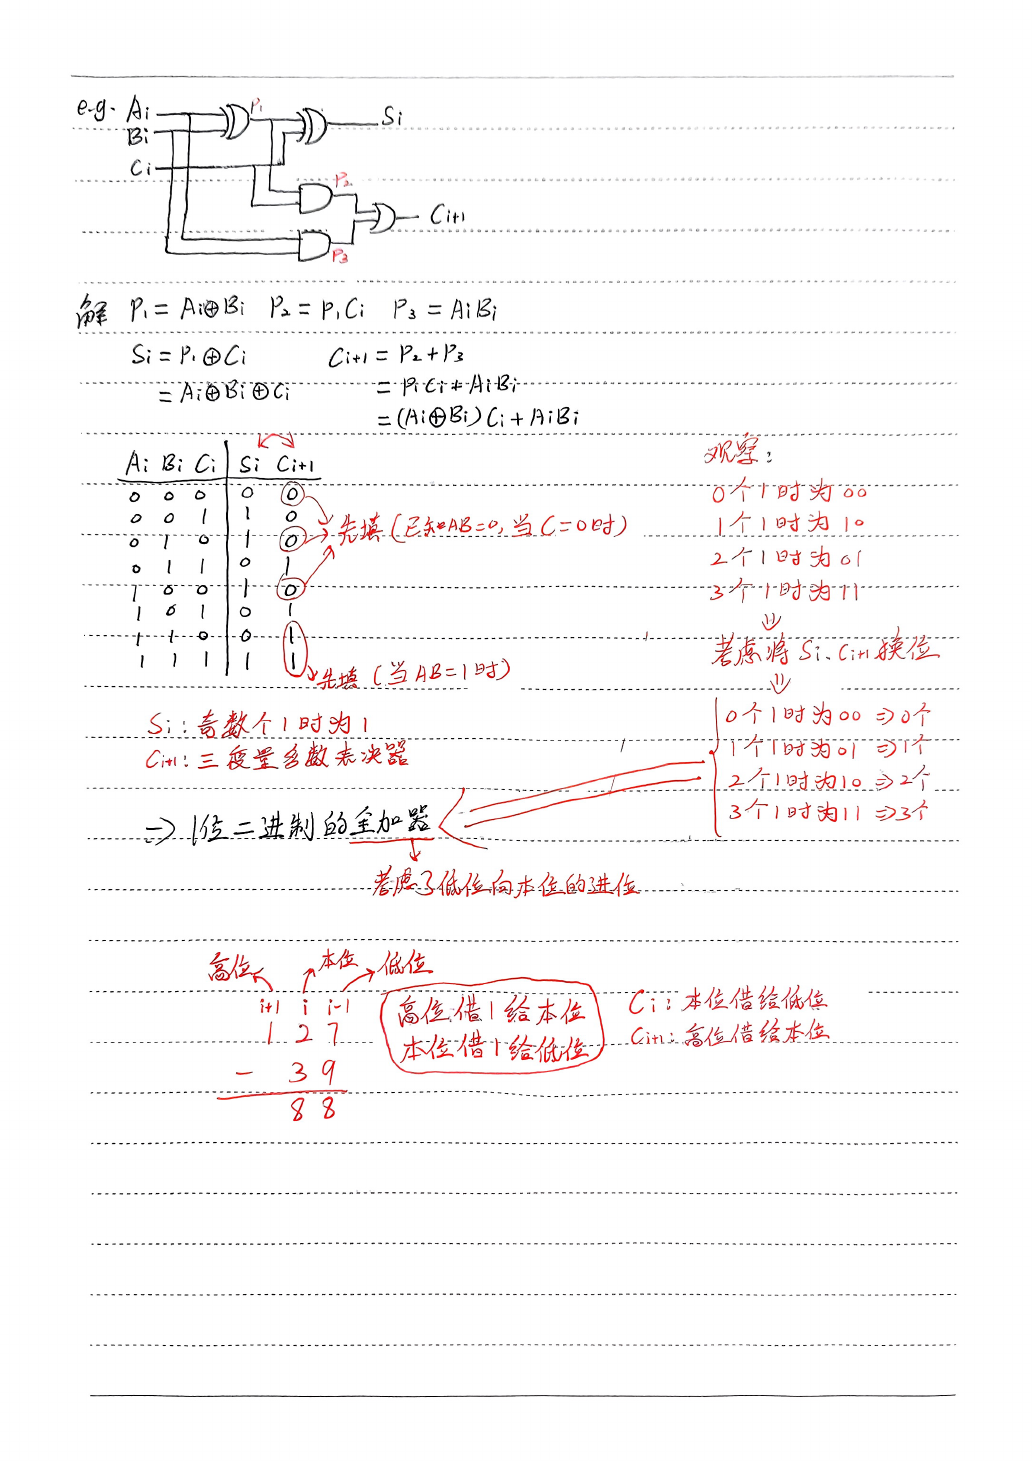 e.g. Ai
Bi
Ci
P₁
Si
P₂
Ci+1
P₃
解 P₁ = Ai⊕Bi P₂ = P₁Ci P₃ = AiBi
Si = P₁⊕Ci Ci+1 = P₂+P₃
= Ai⊕Bi⊕Ci = P₁Ci+AiBi
= (Ai⊕Bi)Ci+AiBi
Ai Bi Ci Si Ci+1
0 0 0 0 0
0 0 1 1 0
0 1 0 1 0
0 1 1 0 1
1 0 0 1 0
1 0 1 0 1
1 1 0 0 1
1 1 1 1 1
先填(已知AB=0,当C=0时)
先填(当AB=1时)
观察:
0个1时为00
1个1时为10
2个1时为01
3个1时为11
⇓
考虑将Si、Ci+1换位
⇓
0个1时为00⇒0个
1个1时为01⇒1个
2个1时为10⇒2个
3个1时为11⇒3个
Si:奇数个1时为1
Ci+1:三变量多数表决器
⇒1位二进制的全加器
考虑了低位向本位的进位
高位 本位 低位
i+1 i i-1
1 2 7
- 3 9
8 8
高位借1给本位
本位借1给低位
Ci:本位借给低位
Ci+1:高位借给本位